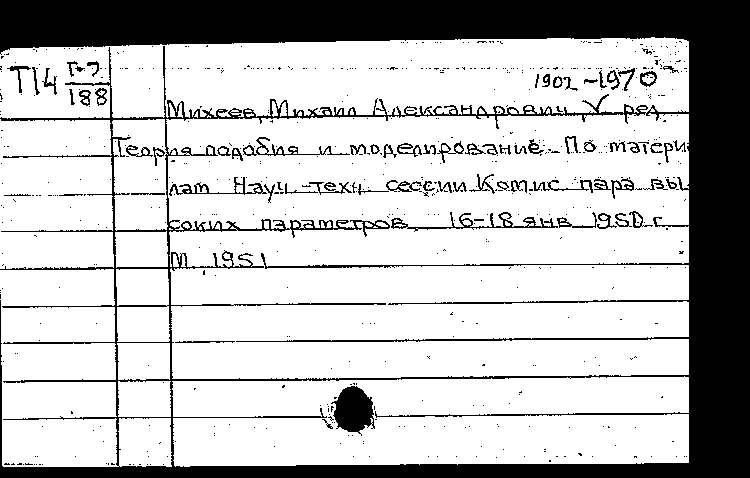 Т14 Г-7
188
1902-1970
Михеев, Михаил Александрович, ред.
Теория подобия и моделирование. По матери-
лам Науч.-техн. сессии Комис. пара вы-
соких параметров, 16-18 янв. 1950 г.
М., 1951